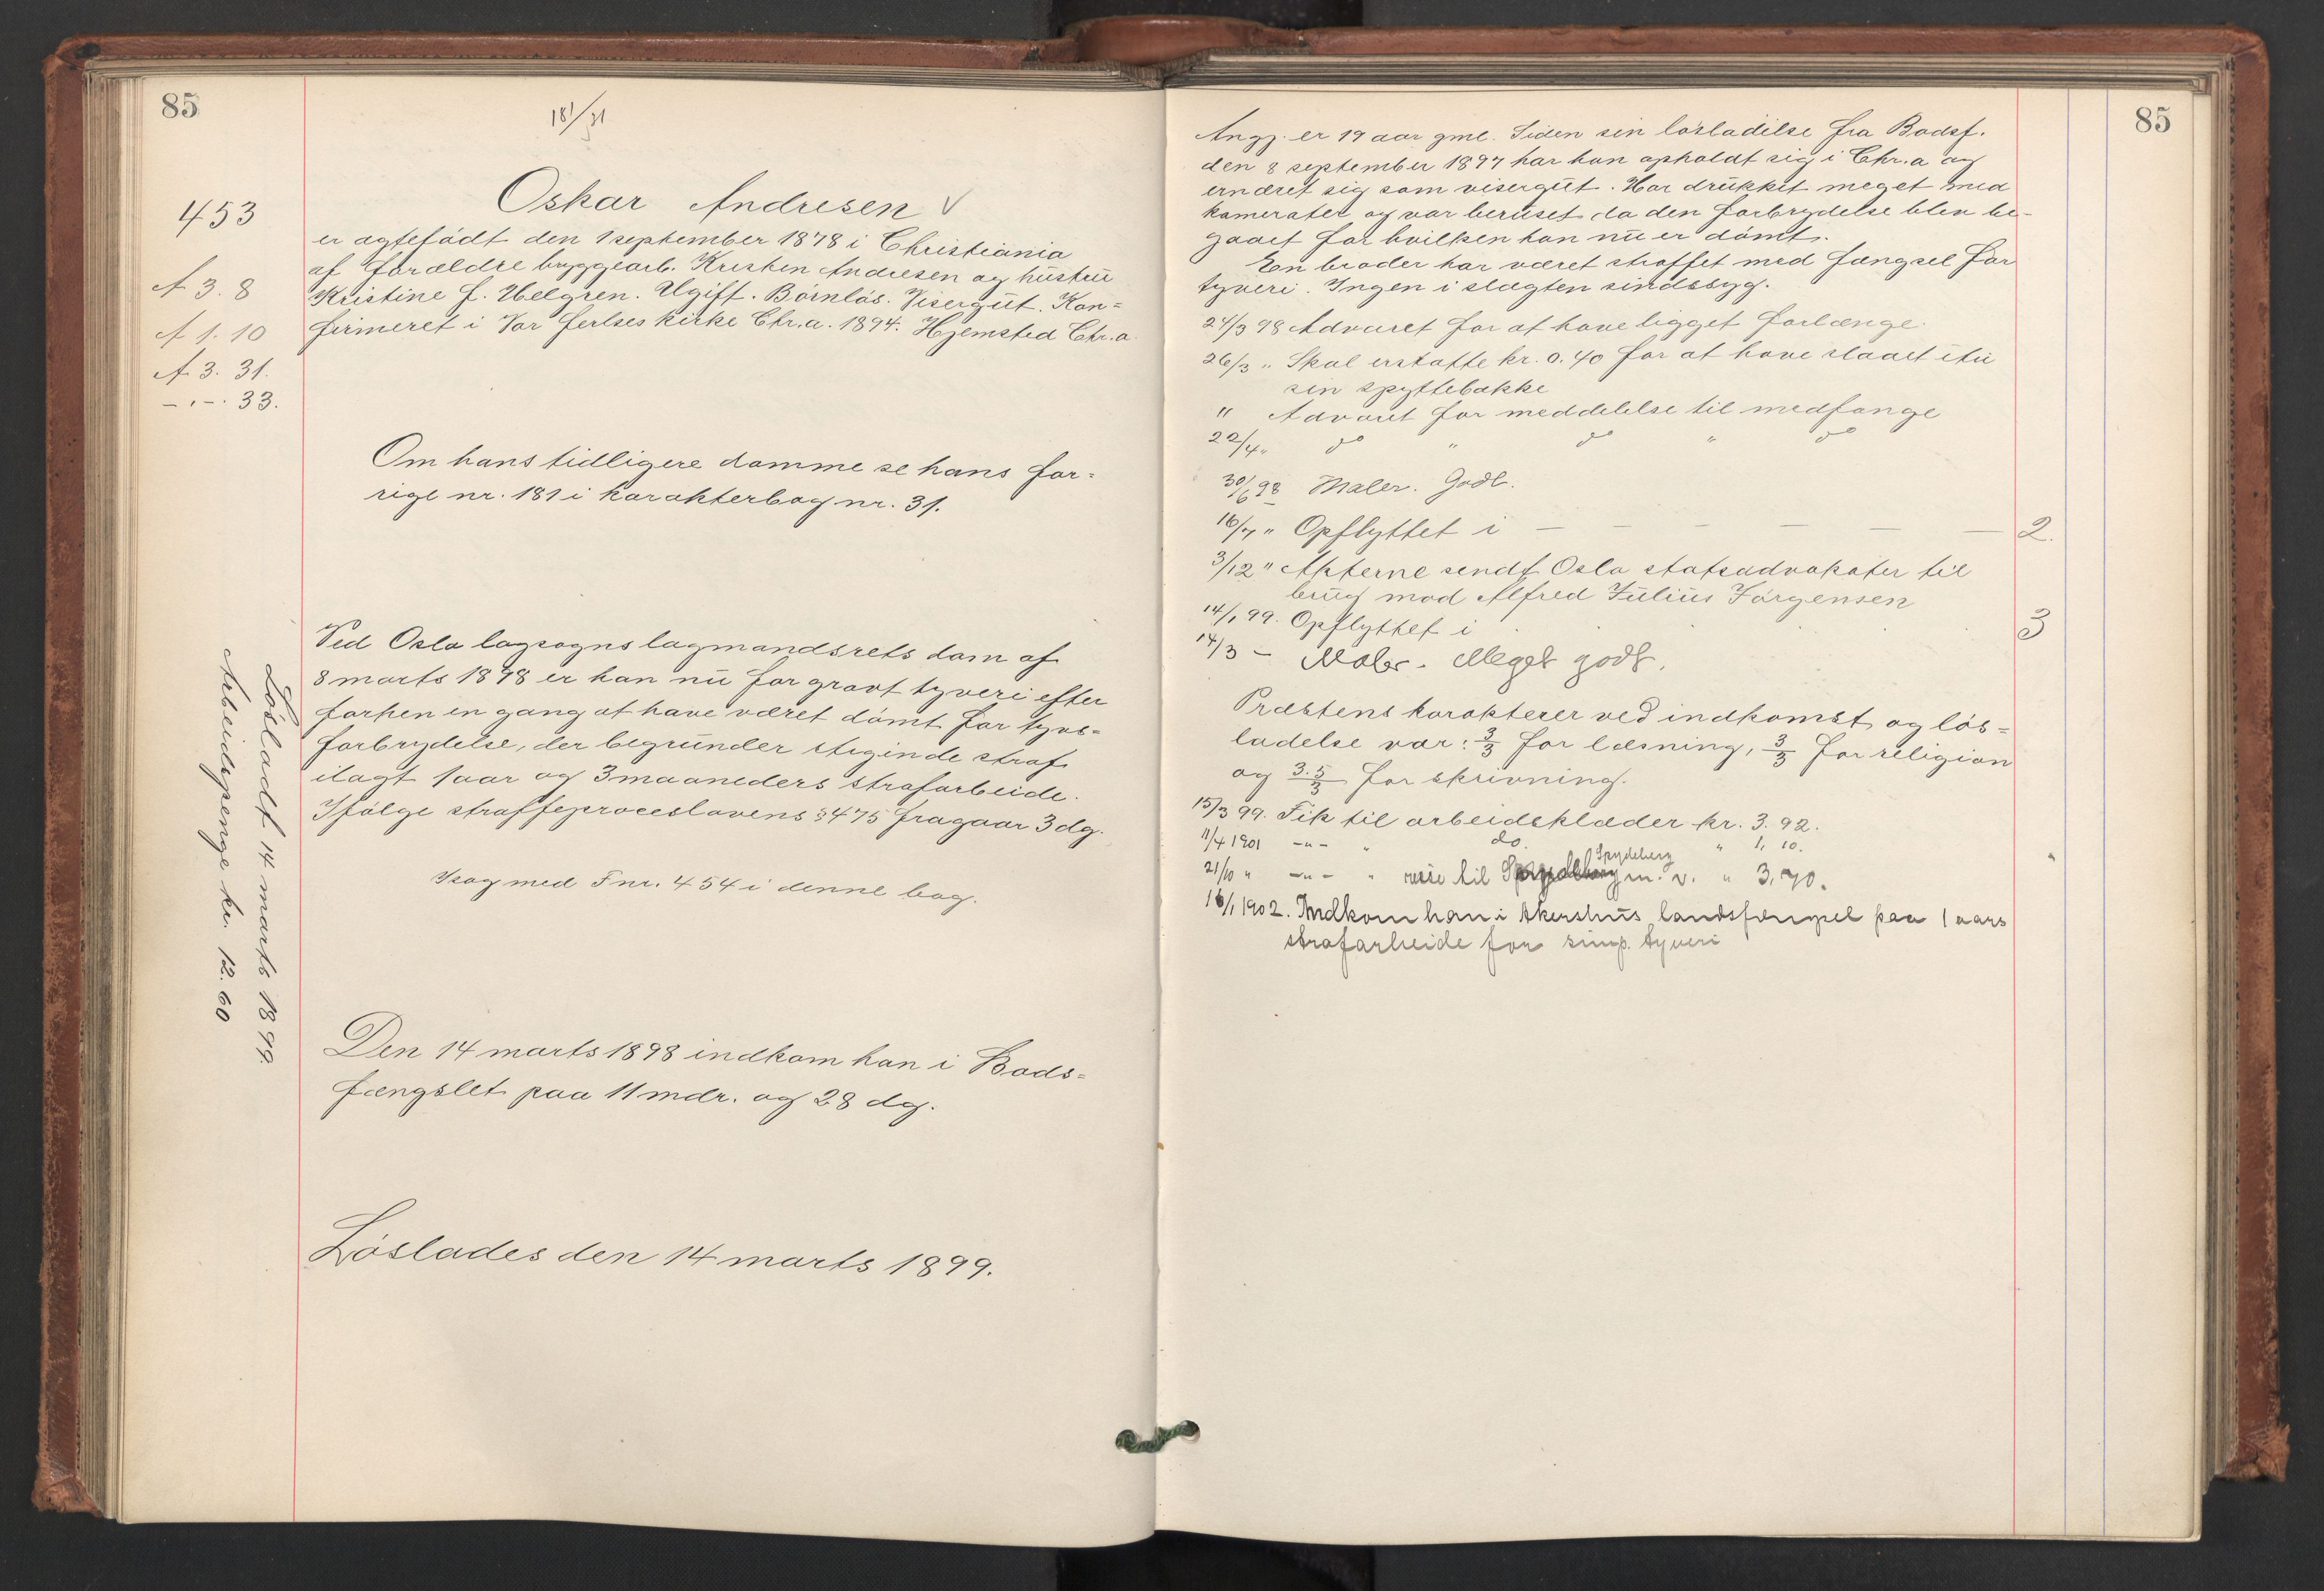 85
181/31
453
Oskar Andresen V
er ægtefödt den 1 september 1878 i Christiania
af forældre bryggearb. Kristen Andresen og hüstrü
Kristine f. Helgren. Ugift. Börnlös. Visergüt. Kon=
firmeret i Vor ferlses kirke Chr.a. 1894. Hjemsted Chr.a.
A 3. 8
A 1. 10
A. 3. 31.
– . – . 33.
Om hans tidligere domme se hans for=
rige nr. 181 i karakterbog nr. 31.
Ved Oslo lagsogns lagmandsrets dom af
8 marts 1898 er han nü for grovt tyveri efter
forhen en gang at have været dömt for tyvs=
forbrydelse, der begründer stiginde straf
ilagt 1 aar og 3 maaneders strafarbeide.
Ifölge straffeproceslovens § 475 fragaar 3 dg.
Isag med Fnr. 454 i denne bog.
Lösladt 14 marts 1899.
Arbeidspenge kr. 12.60
Den 14 marts 1898 indkom han i Bods=
fængslet paa 11 mdr. og 28 dg.
Löslades den 14 marts 1899.
85
Angj. er 19 aar gml. Siden sin lösladelse fra Bodsf.
den 8 september 1897 har han opholdt sig i Chr.a og
ernæret sig som visergüt. Har drükket meget med
kamerater og var berüset da den forbrydelse blev be-
gaaet for hvilken han nü er dömt.
En broder har været straffet med fængsel for
tyveri. Ingen i slægten sindssyg.
24/3 98 Advaret for at have ligget forlænge.
26/3 " Skal erstatte kr. 0.40 for at have slaaet itü
sin spyttebakke
" Advaret for meddelelse til medfange
22/4 " do " do " do
30/6 98 Maler. Godt.
16/7 " Opflyttet i — — — — — — 2.
3/12 " Akterne sendt Oslo statsadvokater til
brüg mod Alfred Jülius Jörgensen
14/1 99. Opflyttet i 3
14/3 – Maler. Meget godt.
Præstens karakterer ved indkomst og lös=
ladelse var: 3/3 for læsning, 3/3 for religion
og 3.5/3 for skrivning.
15/3 99. Fik til arbeidsklæder kr. 3.92.
11/4 1901 –"– " do. " 1, 10.
Spydeberg
21/10 " –"– " reise til m. v. " 3,70.
16/1 1902. Indkom han i Akershus landsfængsel paa 1 aars
strafarbeide for simp. tyveri